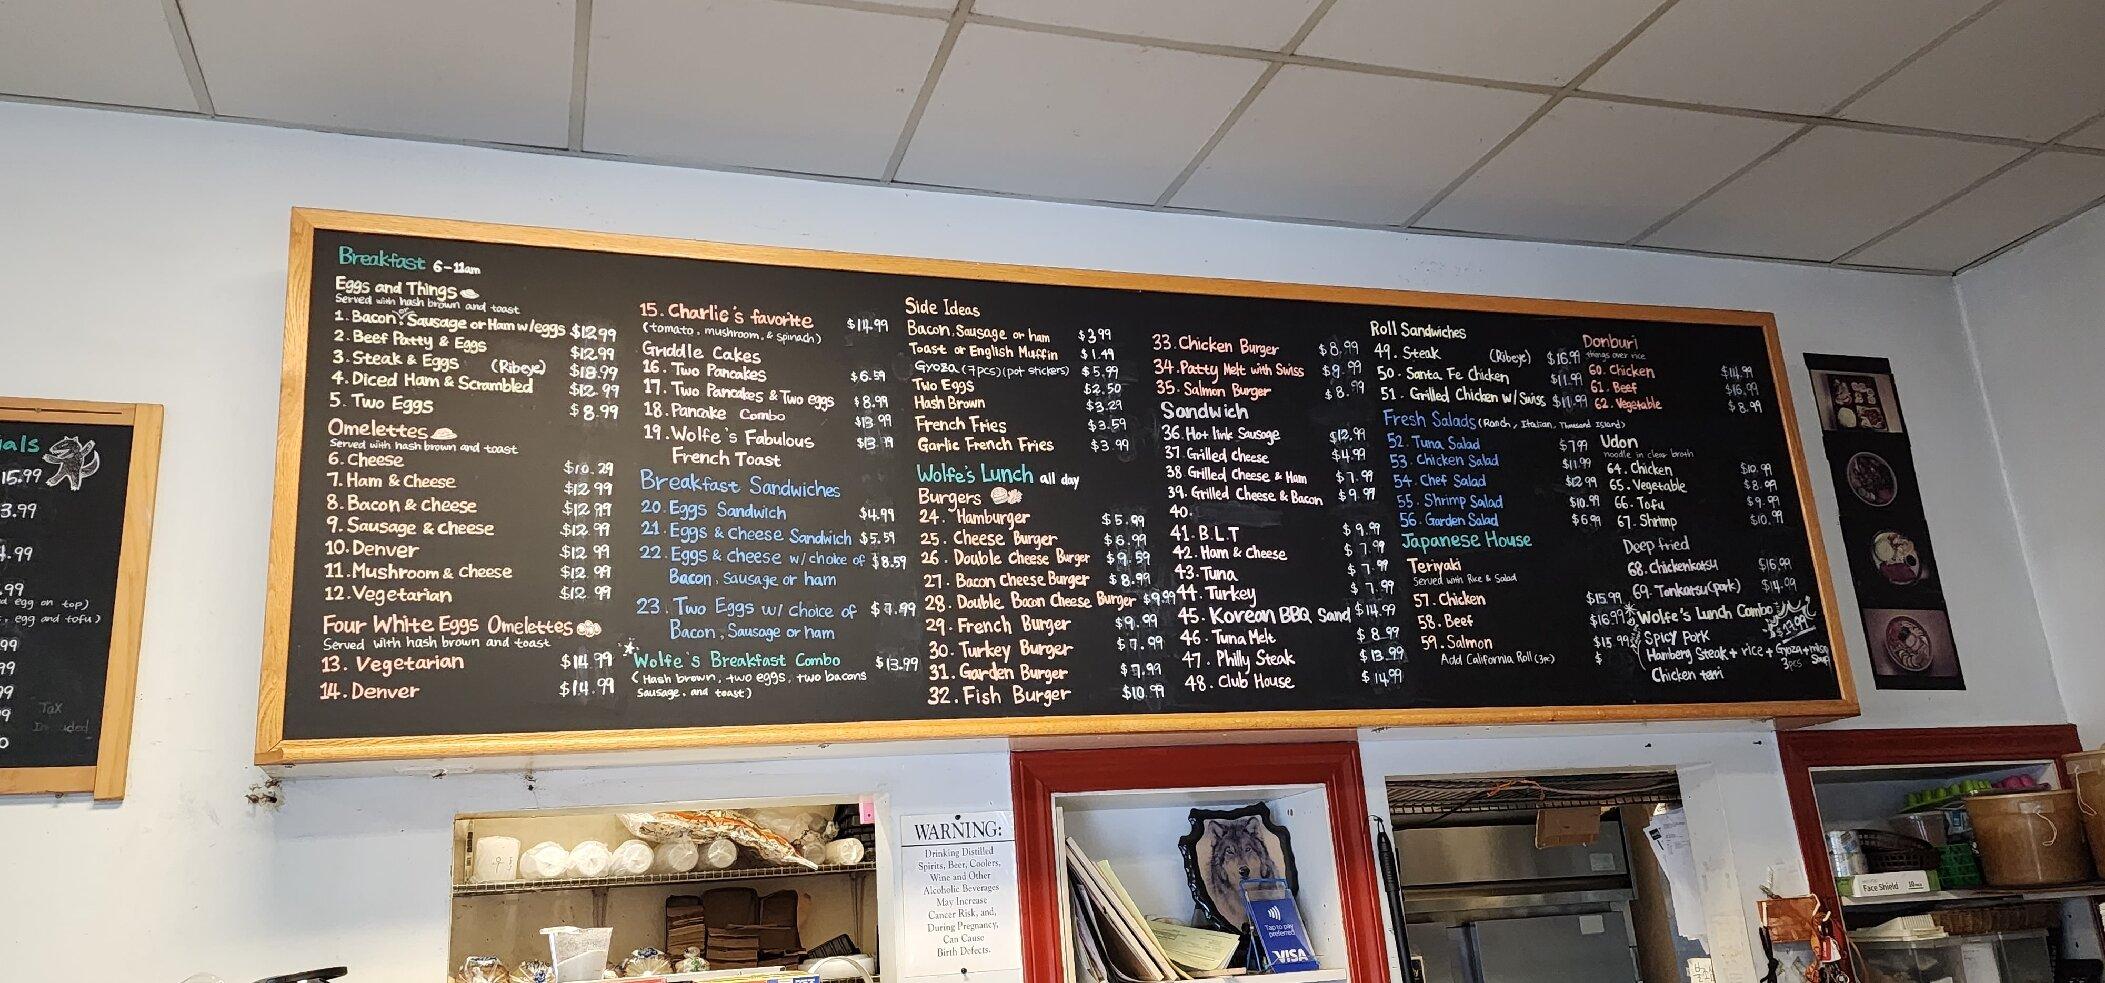 Breakfast 6-11am
Eggs and Things
Served with hash brown and toast
1. Bacon, or Sausage or Ham w/eggs $12.99
2. Beef Patty & Eggs $12.99
3. Steak & Eggs (Ribeye) $18.99
4. Diced Ham & Scrambled $12.99
5. Two Eggs $8.99
Omelettes
Served with hash brown and toast
6. Cheese $10.29
7. Ham & Cheese $12.99
8. Bacon & Cheese $12.99
9. Sausage & Cheese $12.99
10. Denver $12.99
11. Mushroom & Cheese $12.99
12. Vegetarian $12.99
Four White Eggs Omelettes
Served with hash brown and toast
13. Vegetarian $14.99
14. Denver $14.99
15. Charlie's favorite $14.99
(tomato, mushroom, & spinach)
Griddle Cakes
16. Two Pancakes $6.59
17. Two Pancakes & Two eggs $8.99
18. Pancake Combo $13.99
19. Wolfe's Fabulous $13.99
French Toast
Breakfast Sandwiches
20. Eggs Sandwich $4.99
21. Eggs & Cheese Sandwich $5.59
22. Eggs & Cheese w/choice of $8.59
Bacon, Sausage or ham
23. Two Eggs w/ choice of $7.99
Bacon, Sausage or ham
Wolfe's Breakfast Combo $13.99
(Hash brown, two eggs, two bacons
Sausage, and toast)
Side Ideas
Bacon, Sausage or ham $3.99
Toast or English Muffin $1.49
Gyoza (7pcs) (pot stickers) $5.99
Two Eggs $2.50
Hash Brown $3.29
French Fries $3.59
Garlic French Fries $3.99
Wolfe's Lunch all day
Burgers
24. Hamburger $5.99
25. Cheese Burger $6.99
26. Double Cheese Burger $9.59
27. Bacon Cheese Burger $8.99
28. Double Bacon Cheese Burger $9.99
29. French Burger $9.99
30. Turkey Burger $7.99
31. Garden Burger $7.99
32. Fish Burger $10.99
33. Chicken Burger $8.99
34. Patty Melt with Swiss $9.99
35. Salmon Burger $8.99
Sandwich
36. Hot link Sausage $12.99
37. Grilled Cheese $4.99
38 Grilled Cheese & Ham $7.99
39. Grilled Cheese & Bacon $9.99
40.
41. B.L.T $9.99
42. Ham & Cheese $7.99
43. Tuna $7.99
44. Turkey $7.99
45. Korean BBQ Sand $14.99
46. Tuna Melt $8.99
47. Philly Steak $13.99
48. Club House $14.99
Roll Sandwiches
49. Steak (Ribeye) $16.99
50. Santa Fe Chicken $11.99
51. Grilled Chicken w/Swiss $11.99
Fresh Salads (Ranch, Italian, Thousand Island)
52. Tuna Salad $7.99
53. Chicken Salad $11.99
54. Chef Salad $12.99
55. Shrimp Salad $10.99
56. Garden Salad $6.99
Japanese House
Teriyaki
Served with Rice & Salad
57. Chicken $15.99
58. Beef $16.99
59. Salmon $15.99
Add California Roll (3pc) $
Donburi
things over rice
60. Chicken $14.99
61. Beef $16.99
62. Vegetable $8.99
Udon
noodle in clear broth
64. Chicken $10.99
65. Vegetable $8.99
66. Tofu $9.99
67. Shrimp $10.99
Deep fried
68. Chickenkatsu $16.99
69. Tonkatsu (pork) $14.99
Wolfe's Lunch Combo
Spicy Pork
Hamberg Steak + rice + Gyoza + miso
3pcs Soup
Chicken teri
ials
15.99
3.99
4.99
.99
d egg on top)
, egg and tofu)
99
99
99
9
Tax
0
WARNING:
Drinking Distilled
Spirits, Beer, Coolers,
Wine and Other
Alcoholic Beverages
May Increase
Cancer Risk, and,
During Pregnancy,
Can Cause
Birth Defects.
Tap to pay
preferred
VISA
Face Shield